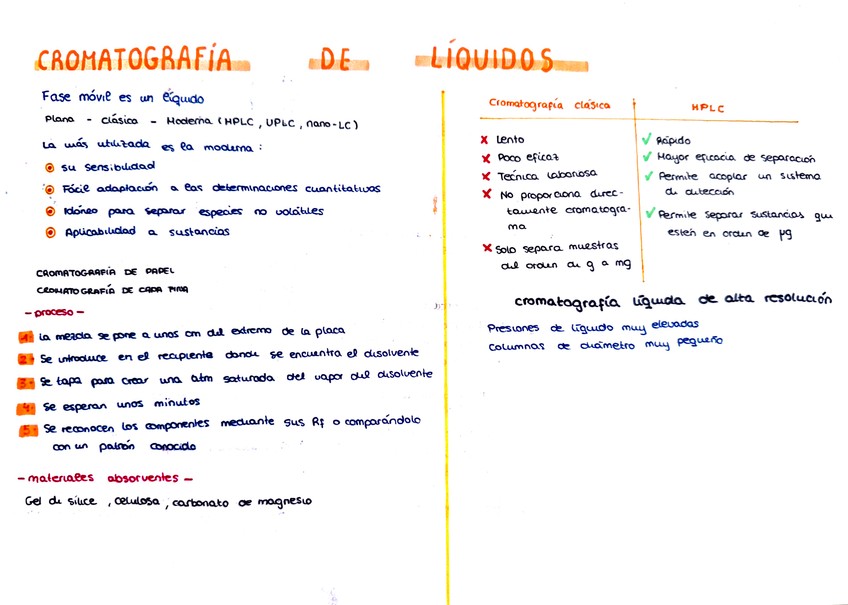 CROMATOGRAFÍA DE LÍQUIDOS
Fase móvil es un líquido
Plana - clásica - Moderna (HPLC, UPLC, nano-LC)
La más utilizada es la moderna:
su sensibilidad
Fácil adaptación a las determinaciones cuantitativas
Idóneo para separar especies no volátiles
Aplicabilidad a sustancias
CROMATOGRAFÍA DE PAPEL
CROMATOGRAFÍA DE CAPA FINA
- proceso -
1- La mezcla se pone a unos cm del extremo de la placa
2- Se introduce en el recipiente donde se encuentra el disolvente
3- Se tapa para crear una atm saturada del vapor del disolvente
4- Se esperan unos minutos
5- Se reconocen los componentes mediante sus Rf o comparándolo
con un patrón conocido
- materiales absorventes -
Gel de sílice, celulosa, carbonato de magnesio
Cromatografía clásica
✗ Lento
✗ Poco eficaz
✗ Técnica laboriosa
✗ No proporciona direc-
tamente cromatogra-
ma
✗ Solo separa muestras
del orden de g a mg
HPLC
✓ Rápido
✓ Mayor eficacia de separación
✓ Permite acoplar un sistema
de detección
✓ Permite separar sustancias que
estén en orden de pg
cromatografía líquida de alta resolución
Presiones de líquido muy elevadas
Columnas de diámetro muy pequeño